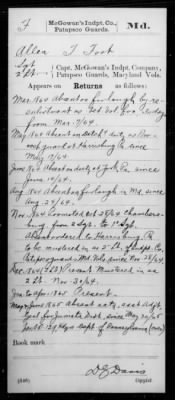 F
McGowan's Indpt. Co.,
Patapsco Guards.
Md.
Allen T Foot
Sgt
2 Lt.
Capt. McGowan's Indpt. Company,
Patapsco Guards, Maryland Vols.
Appears on
Returns as follows:
Mar. 1864 Absent on furlough by re-
enlistment as Vet. Vol for
from Mar. 7/64.
May 1864 Absent on detch'd duty as Prov.
Harrisburg Pa since
May 17/64
June 1864 Absent on duty at York Pa since
June 10/64.
Aug. 1864 Absent on furlough in Md. since
Aug. 29/64.
Nov. 1864 Promoted Oct 25/64 Chambers-
burg from 2 Sgt. to 1st Sgt.
Absent ordered to Harrisburg, Pa
to be mustered in as 2 Lt. of Indpt. Co.
Patapsco guards Md. Vols. since Nov 28/64
Dec. 1864 (2 Lt) Present Mustered in as
2 Lt. Nov. 30/64
Jan. to Apr. 1865 Present.
June 1865 Absent actg. asst. Adjt.
Genl. for Juniata Dist. since May 20/65
Dept of Pennsylvania
Book mark
(546)
D E Davis
Copyist.